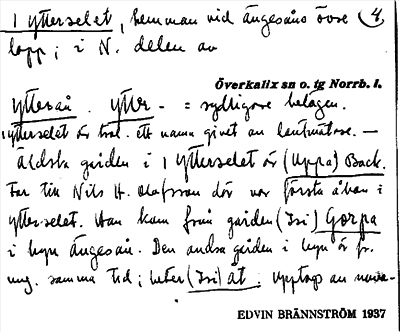 1 Ytterselet, hemman vid Ängesåns övre 4.
lopp; i N. delen av
Överkalix sn o. tg Norrb. l.
Ytterån. Ytter- = sydligare belägen.
1 Ytterselet är trol. ett namn givet av lantmätare. —
Äldsta gården i 1 Ytterselet är (Uppa) Back.
Far till Nils H. Olofsson där var första åbon i
Ytterselet. Han kom från gården (Isi) Gorpa
i byn Ängesån. Den andra gården i byn är fr.
ung. samma tid; heter (Isi) åt; upptog av
EDVIN BRÄNNSTRÖM 1937